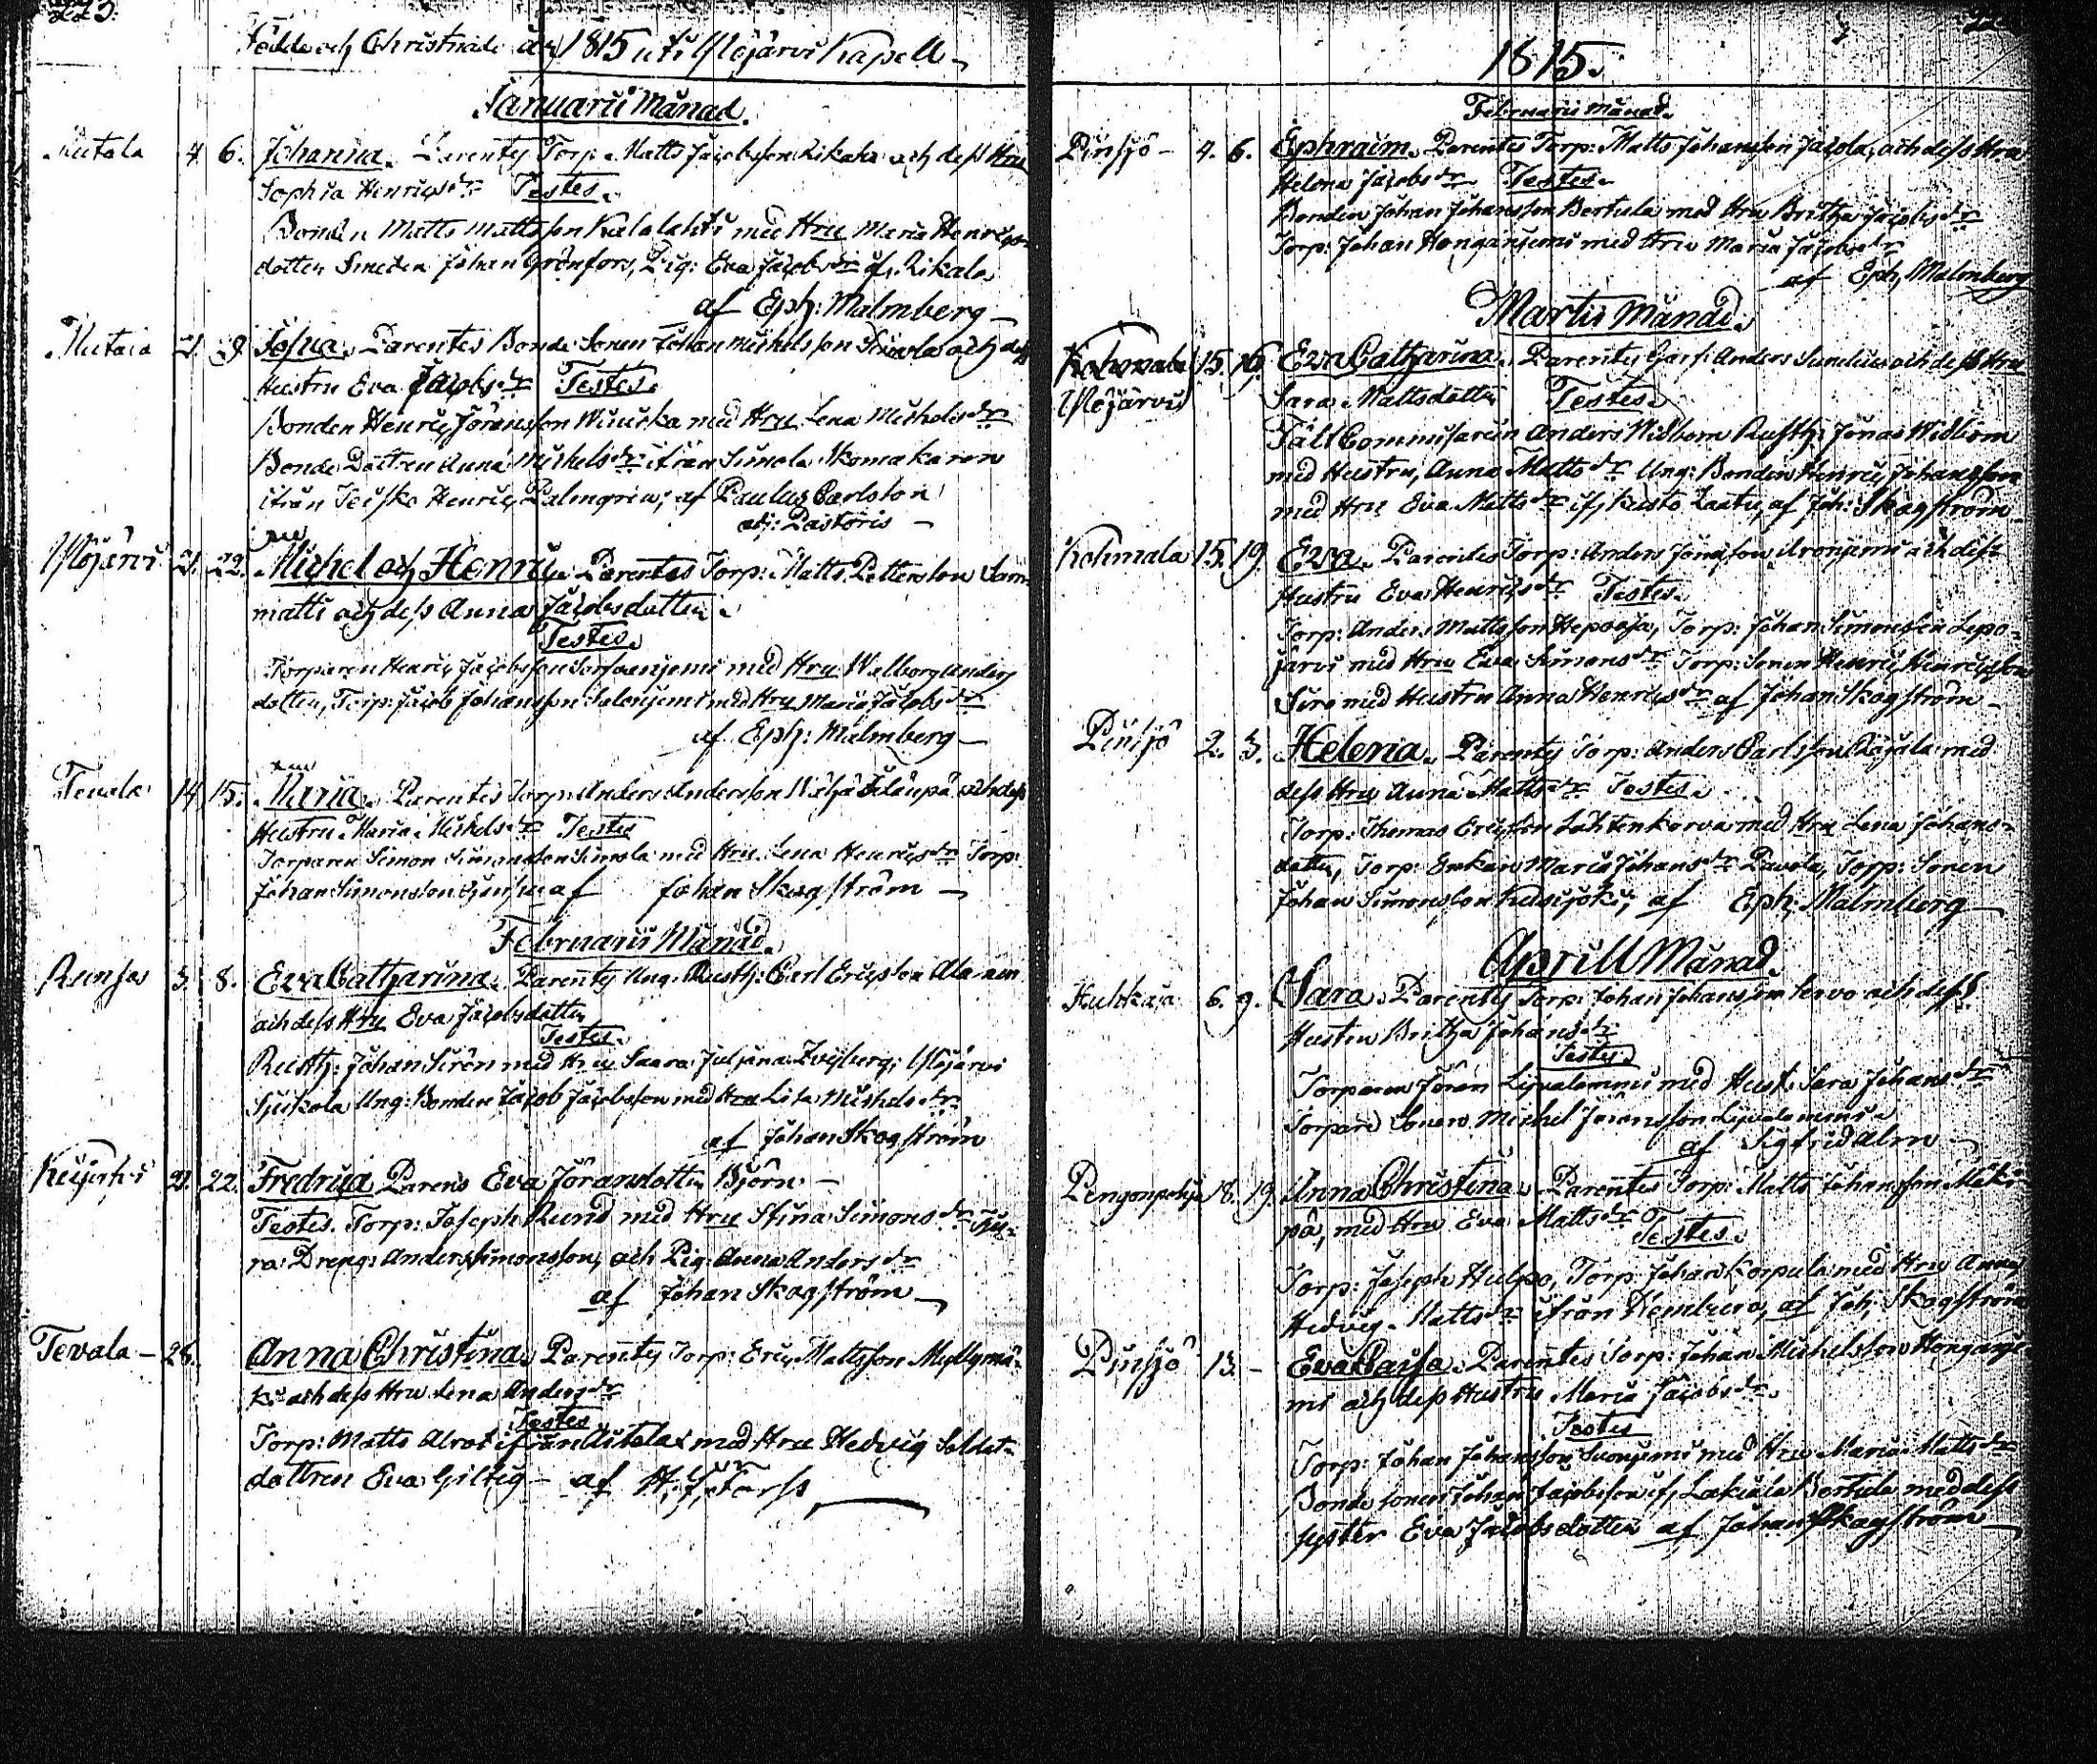 223.
Födde och Christnade år 1815 uti Ylöjärvi Kapell
Januarii Månad.
Mutala 4 6. Johanna. Parentes Torp. Matts Jacobsson Rikala och dess Hru
Sophia Henricsdr Testes.
Bonden Matts Mattsson Kalalahti med Hru Maria Henrics-
dotter Smeden Johan Grönfors, Pig: Eva Jacobsdr if. Rikala
af Eph: Malmberg
Mutala Josua. Parentes Bonde Sonen Johan Michelsson och dess
Hustru Eva Jacobsdr Testes.
Bonden Henric Jöransson med Hru Lena Michelsdr
Bonde Dottren Anna Michelsdr ifrån Simola Skomakaren
ifrån Henric Palmgren; af Paulus Carlston
adj: Pastoris
Ylöjärvi 21. 22. Michel och Henric. Parentes Torp: Matts Pettersson Sam-
matti och dess Anna Jacobsdotter.
Testes.
Torparen Henric Jacobsson med Hru Walborg Anders
dotter, Torp: Jacob Johansson med Hru Maria Jacobsdr
af Eph: Malmberg
14 15. Maria. Parentes Torp: Anders Andersson och dess
Hustru Maria Michelsdr Testes
Torparen Simon Simonsson Simola med Hru Lena Henricsdr Torp:
Johan Simonsson af Johan Skogström
Februarii Månad.
Runsas 3. 8. Eva Catharina. Parentes Ung. Rusth: Carl Ericsson Alanen
och dess Hru Eva Jacobsdotter
Testes.
Rusth: Johan Sirén med Hru Saara Juliana Ylöjärvi
Ung: Bonden Jacob Jacobsson med Hru Lisa Michelsdr
af Johan Skogström
21. 22. Fredrica Parens Eva Jöransdotter Björn
Testes. Torp: Joseph Rund med Hru Stina Simonsdr
Dreng: Anders Simonsson, och Pig: Anna Andersdr
af Johan Skogström
Tevala 26. Anna Christina. Parentes Torp: Eric Mattsson Myllymä-
ki och dess Hru Lena Andersdr
Testes
Torp: Matts Alrot ifrån med Hru Hedvig Soldat-
dottren Eva Gillig af H. J. Forss
1815.
Februarii Månad.
Pinsjö 4. 6. Ephraim. Parentes Torp: Matts Johansson Jacola, och dess Hru
Helena Jacobsdr Testes.
Bonden Johan Johansson Bertula med Hru Britha Jacobsdr
Torp: Johan Honganjemi med Hru Maria Jacobsdr
af Eph. Malmberg
Martii Månad.
Kohmala 15. 16. Eva Catharina. Parentes Anders Sundelius och dess Hru
Ylöjärvi Sara Mattsdotter Testes.
Fält Commissarien Anders Widbom Rusth: Jonas Widbom
med Hustru, Anna Mattsdr Ung: Bonden Henric Johansson
med Hru Eva Mattsdr if. af Joh: Skogström
Kohmala 15. 19. Eva. Parentes Torp: Anders och dess
Hustru Eva Henricsdr Testes.
Torp: Anders Mattsson Hepooja, Torp: Johan Simonsson Lepo-
järvi med Hru Eva Simonsdr Torp: Sonen Henric Henricsson
Siro med Hustru Anna Henricsdr af Johan Skogström
Pinsjö 2. 3. Helena. Parentes Torp: Anders Carlsson med
dess Hru Anna Mattsdr Testes.
Torp: Thomas Ericsson Lähtenkorva med Hru Lena Johans-
dotter, Torp: Enkan Maria Johansdr Pavola, Torp: Sonen
Johan Simonsson af Eph: Malmberg
Aprill Månad.
6. 9. Sara. Parentes Torp: Johan Johansson Servo och dess
Hustru Britha Johansdr
Testes.
Torparen Jöran Lipvalammi med Hust. Sara Johansdr
Torpare Sonen Michel Jöransson Lipvalammi
af Sigfrid Alm
Pengonpohja 18. 19. Anna Christina. Parentes Torp: Matts Johansson Mäki-
pä, med Hru Eva Mattsdr Testes.
Torp: Joseph Hulpo, Torp: Johan Korpula med Hru Anna
Hedvig Mattsdr ifrån af Joh. Skogström
Pinsjö 13. Eva Caisa. Parentes Torp: Johan Michelsson Honganje-
mi och dess Hustru Maria Jacobsdr.
Testes
Torp: Johan Johansson med Hru Maria Mattsdr
Bonde sonen Johan Jacobsson if. Lakiala Bertula med dess
syster Eva Jacobsdotter af Johan Skogström